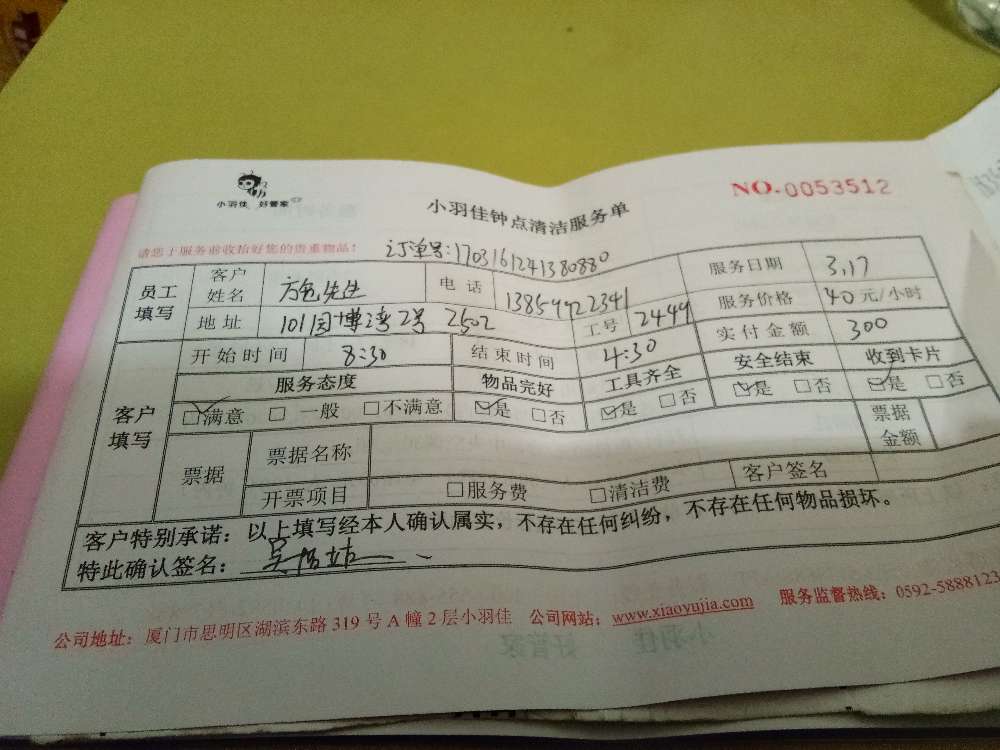 小羽佳 好管家
NO.0053512
小羽佳钟点清洁服务单
请您于服务前收拾好您的贵重物品！
订单号:1703161241380880
员工填写 客户姓名 方 先生 电话 13859922341 服务日期 3.17
地址 101园博湾2号 2502 工号 2449 服务价格 40元/小时
客户填写 开始时间 8:30 结束时间 4:30 实付金额 300
服务态度 物品完好 工具齐全 安全结束 收到卡片
☑满意 □一般 □不满意 ☑是 □否 ☑是 □否 ☑是 □否 ☑是 □否
票据 票据名称 票据金额
开票项目 □服务费 □清洁费 客户签名
客户特别承诺：以上填写经本人确认属实，不存在任何纠纷，不存在任何物品损坏。
特此确认签名：
公司地址：厦门市思明区湖滨东路 319 号 A 幢 2 层小羽佳 公司网站：www.xiaoyujia.com 服务监督热线：0592-5888123